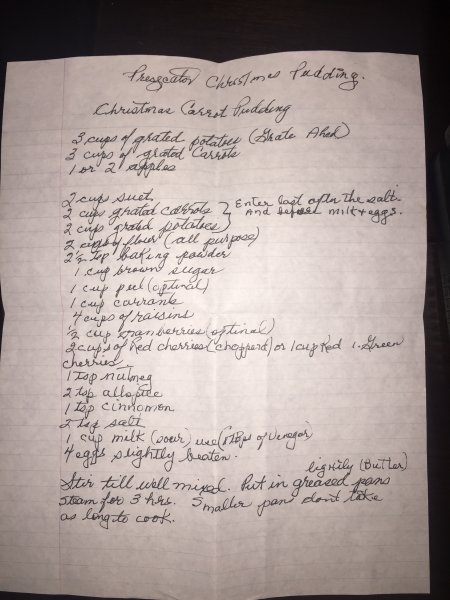 Christmas Pudding.
Christmas Carrot Pudding
3 cups of grated potatoes (Grate Ahead)
3 cups of grated Carrots
1 or 2 apples
2 cups suet
2 cups grated carrots } Enter last after the salt
2 cups grated potatoes } And before milk & eggs.
2 cups flour (all purpose)
2½ tsp baking powder
1 cup brown sugar
1 cup peel (optinal)
1 cup currants
4 cups of raisins
½ cup cranberries (optinal)
2 cups of Red cherries (chopperd) or 1 cup Red 1-Green
cherries
1 tsp nutmeg
2 tsp allspice
1 tsp cinnomon
2 tsp salt
1 cup milk (sour) use ( of Vinegar)
4 eggs slightly beaten.
Stir till well mixed. Put in lightly (Butter) greased pans
Steam for 3 hrs. Smaller pan don't take
as long to cook.